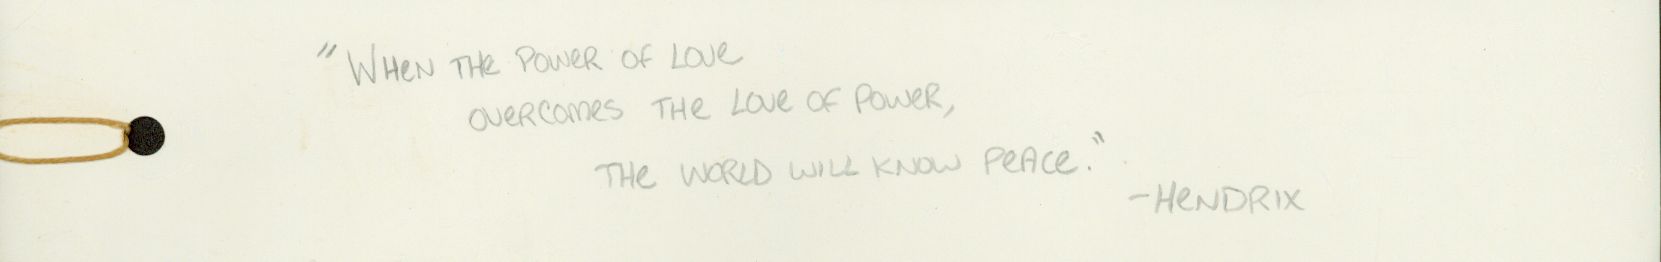 "When the power of love
overcomes the love of power,
the world will know peace."
-Hendrix